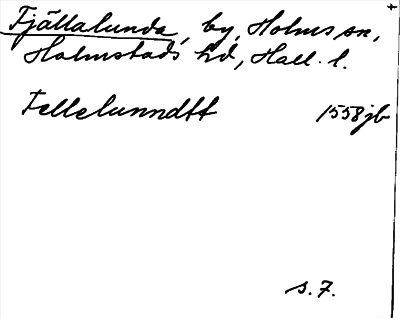 Fjällalunda, by, Holms sn,
Halmstads hd, Hall. l.
Fellelunndtt 1558 jb
s. 7.